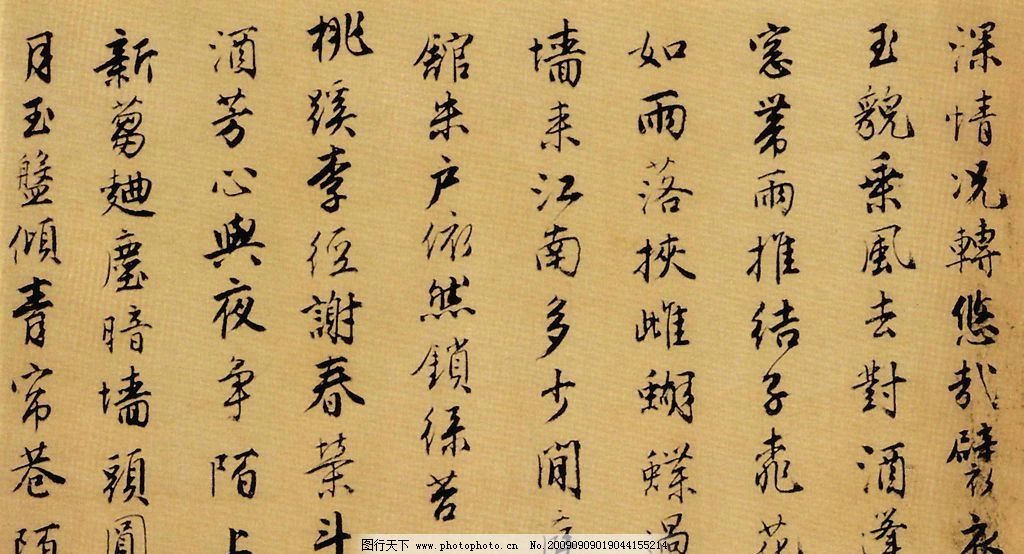 深情况轉悠哉
玉貌乗風去對酒逢
窓帶雨推結子桃花
如雨落挾雌蝴蝶過
墻来江南多少閒
舘朱戶依然鎖緑苔
桃蹊李徑謝春榮斗
酒芳心與夜争陌上
新蒭麯塵暗墻頭圓
月玉盤傾青帘巷陌
图行天下 www.photophoto.cn No.20090909019044155214